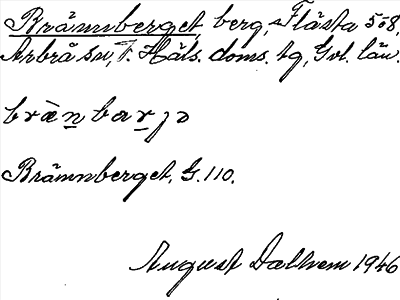 Brännberget, berg, Flästa 5o8,
Arbrå sn, V. Häls. doms. tg, Gvl. län.
bràn̲ bar̲jɔ
Brännberget, G. 110.
August Dalhem 1946